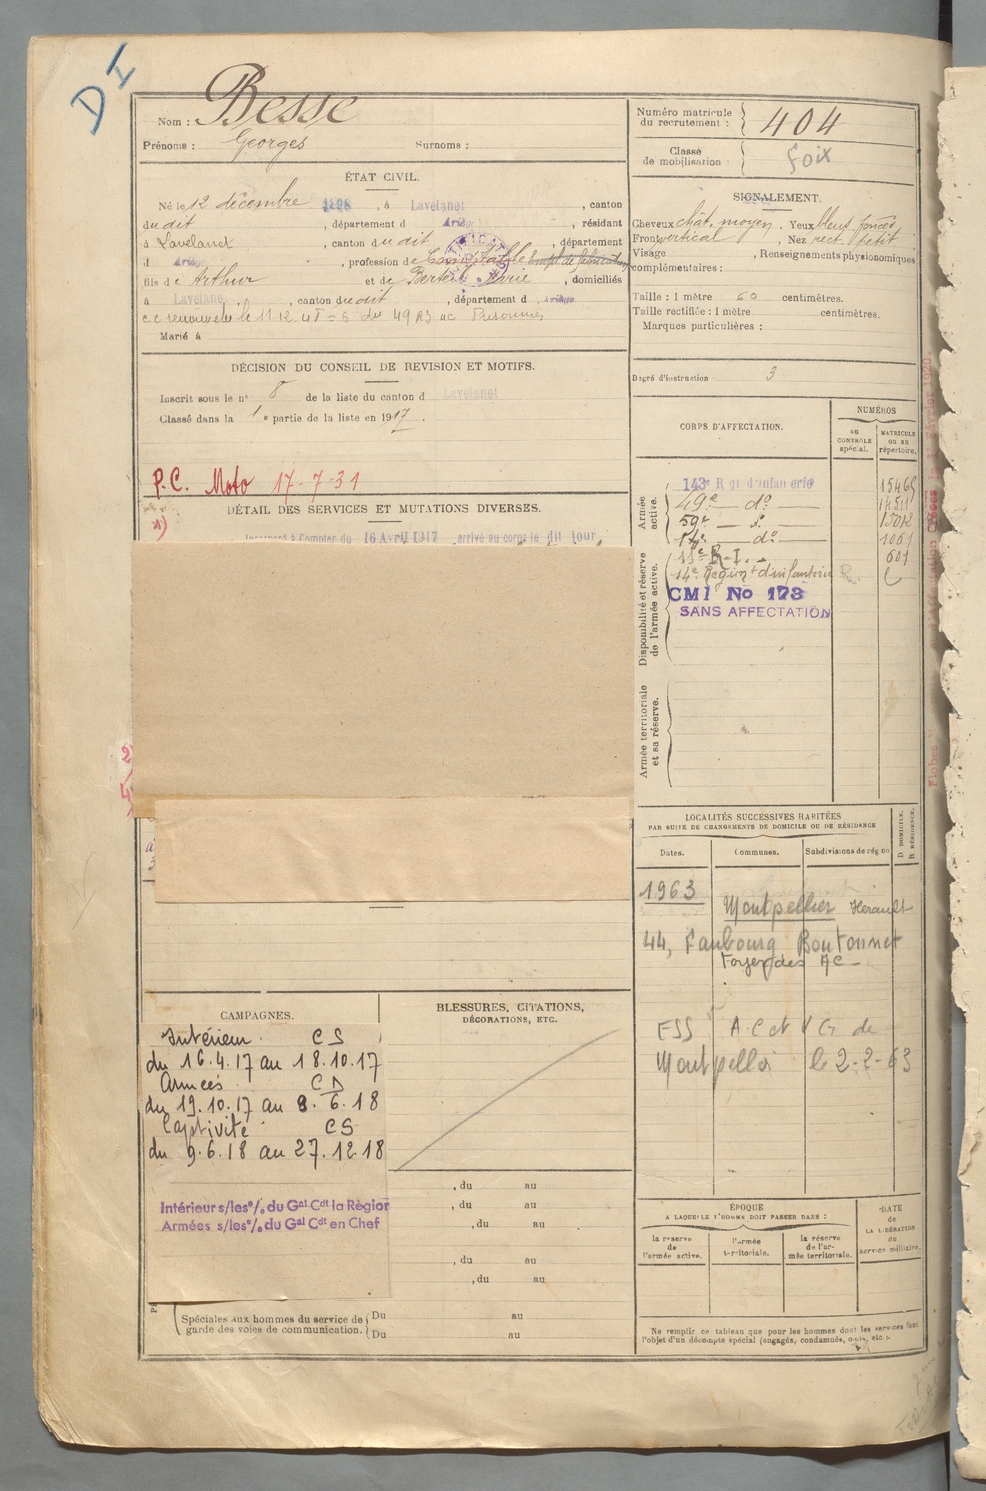 D I
Nom : Besse
Prénoms : Georges Surnoms :
ÉTAT CIVIL.
Né le 12 décembre 1898, à Lavelanet, canton
du dit, département d Ariège, résidant
à Lavelanet, canton du dit, département
d Ariège, profession de Comptable
fils de Arthur et de Marie, domiciliés
à Lavelanet, canton du dit, département d Ariège
Marié à
DÉCISION DU CONSEIL DE REVISION ET MOTIFS.
Inscrit sous le n° 8 de la liste du canton d Lavelanet
Classé dans la 1e partie de la liste en 1917.
P.C. Moto 17-7-31
DÉTAIL DES SERVICES ET MUTATIONS DIVERSES.
Incorporé à Compter du 16 Avril 1917 arrivé au corps le dit jour,
CAMPAGNES.
Intérieur CS
du 16.4.17 au 18.10.17
Armées CD
du 19.10.17 au 8.6.18
Captivité CS
du 9.6.18 au 27.12.18
Intérieur s/les°/. du Gal Cdt la Région
Armées s/les°/. du Gal Cdt en Chef
BLESSURES, CITATIONS,
DÉCORATIONS, ETC.
, du au
, du au
, du au
, du au
, du au
Spéciales aux hommes du service de garde des voies de communication.
Du au
Du au
Numéro matricule du recrutement : 404
Classe de mobilisation : Foix
SIGNALEMENT.
Cheveux chât. moyen. Yeux bleus foncés
Front vertical, Nez rect. petit
Visage , Renseignements physionomiques
complémentaires :
Taille : 1 mètre 60 centimètres.
Taille rectifiée : 1 mètre centimètres.
Marques particulières :
Degré d'instruction 3
CORPS D'AFFECTATION.
NUMÉROS
AU CONTRÔLE spécial.
MATRICULE OU AU répertoire.
Armée active.
143e Rgt d'infanterie
49e — do —
59e — do —
14e — do —
Disponibilité et réserve de l'armée active.
11e R.I.
601
14e Régim't d'infanterie
CMI No 173
SANS AFFECTATION
Armée territoriale et sa réserve.
LOCALITÉS SUCCESSIVES HABITÉES
PAR SUITE DE CHANGEMENTS DE DOMICILE OU DE RÉSIDENCE
Dates. Communes. Subdivisions de région
D DOMICILE. R RÉSIDENCE.
1963 Montpellier Herault
44, Faubourg Boutonnet
Foyer des AC
ESS A.C et V G de
Montpellier le 2-2-63
ÉPOQUE
A LAQUELLE L'HOMME DOIT PASSER DANS :
la réserve de l'armée active.
l'armée territoriale.
la réserve de l'armée territoriale.
DATE de LA LIBÉRATION du service militaire.
Ne remplir ce tableau que pour les hommes dont les services font
l'objet d'un décompte spécial (engagés, condamnés, omis, etc.).